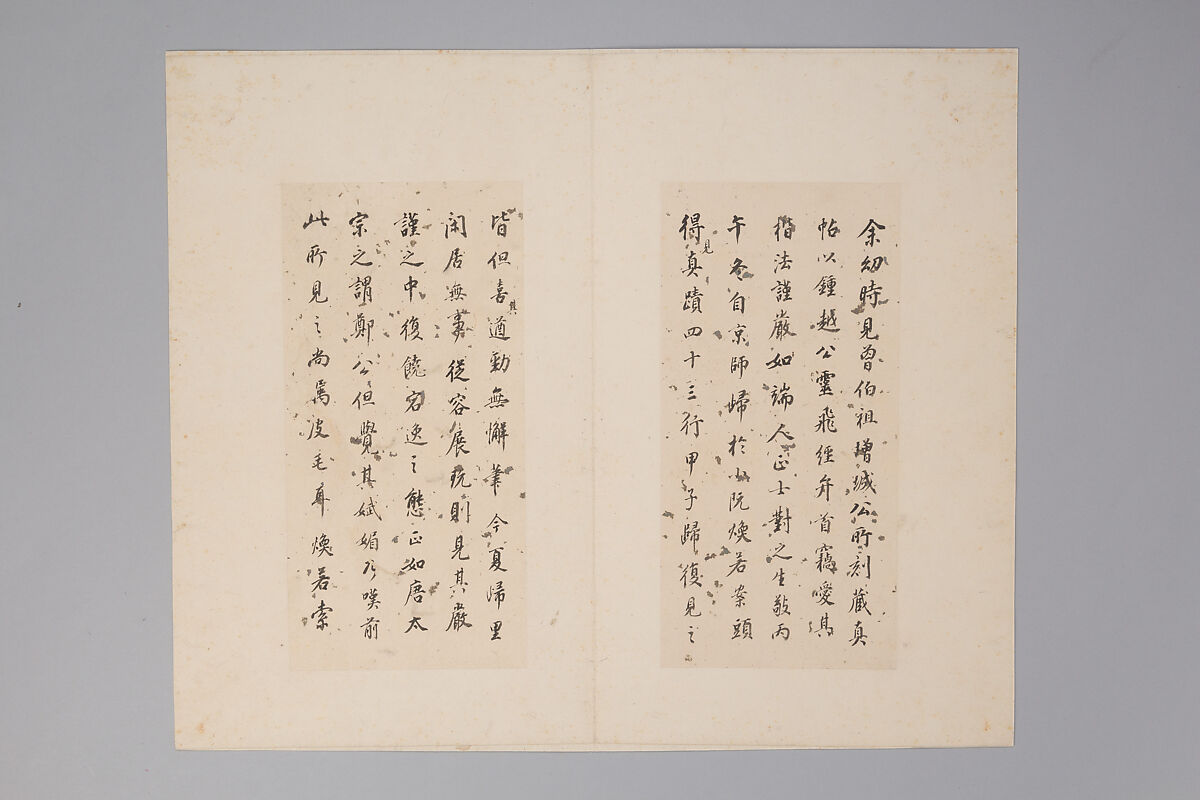 余幼時見曾伯祖增城公所刻藏真
帖以鍾越公靈飛經弁首竊嗳其
楷法謹嚴如端人正士對之生敬丙
午冬自京師歸於小阮煥若案頭
得見真蹟四十三行甲子歸復見之
皆但喜其遒勁無懈筆今夏歸里
閑居無事從容展玩則見其嚴
謹之中復饒宕逸之態正如唐太
宗之謂鄭公但覺其娬媚乃嘆前
此所見之尚為皮毛耳煥若索